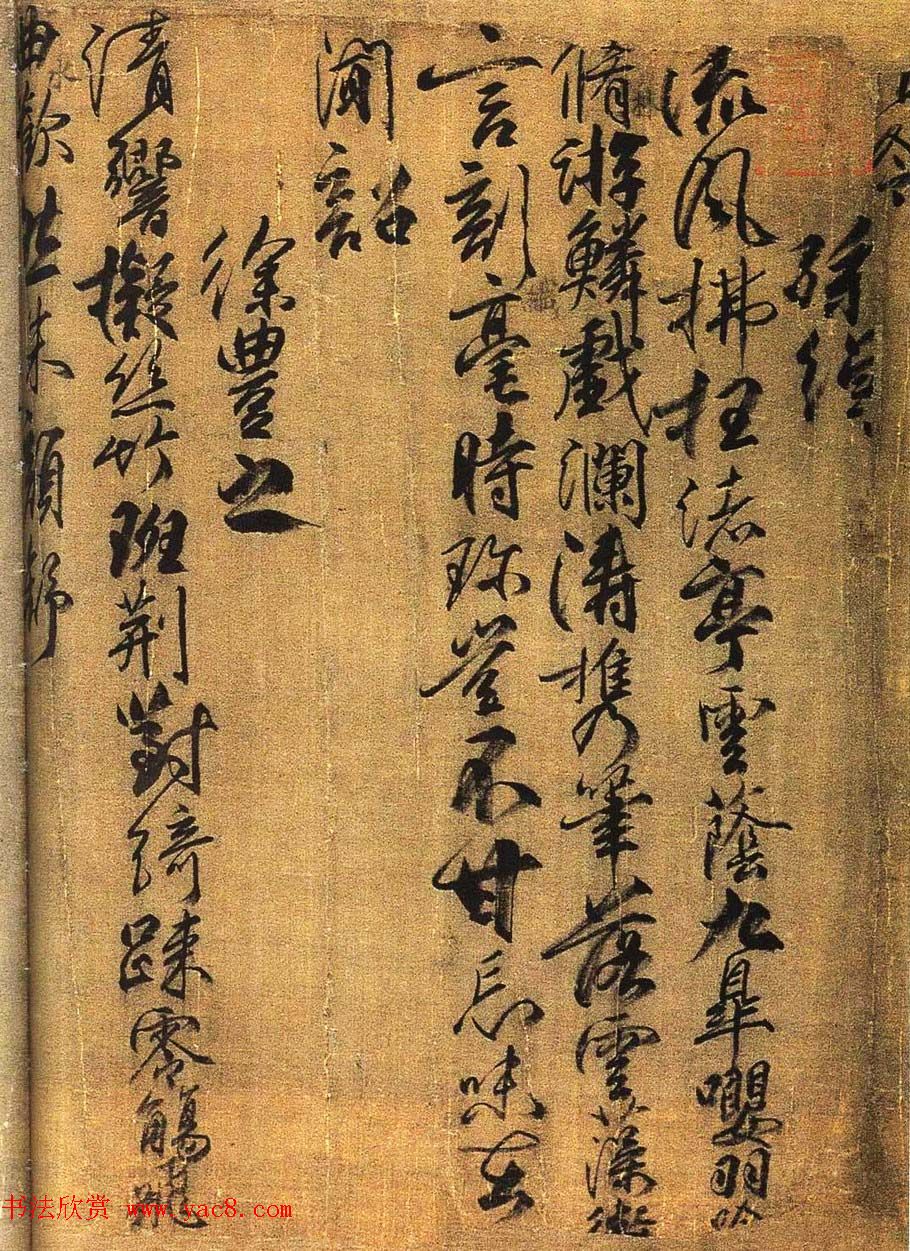 孫綽
流風拂枉渚亭雲蔭九臯嚶羽吟
脩游鱗戲瀾濤携筆落雲藻微
言剖毫時珍豈不甘忘味在
聞韶
徐豐之
清響擬絲竹班荊對綺疎零觴飛
曲水歡然朱顔舒
书法欣赏 www.yac8.com